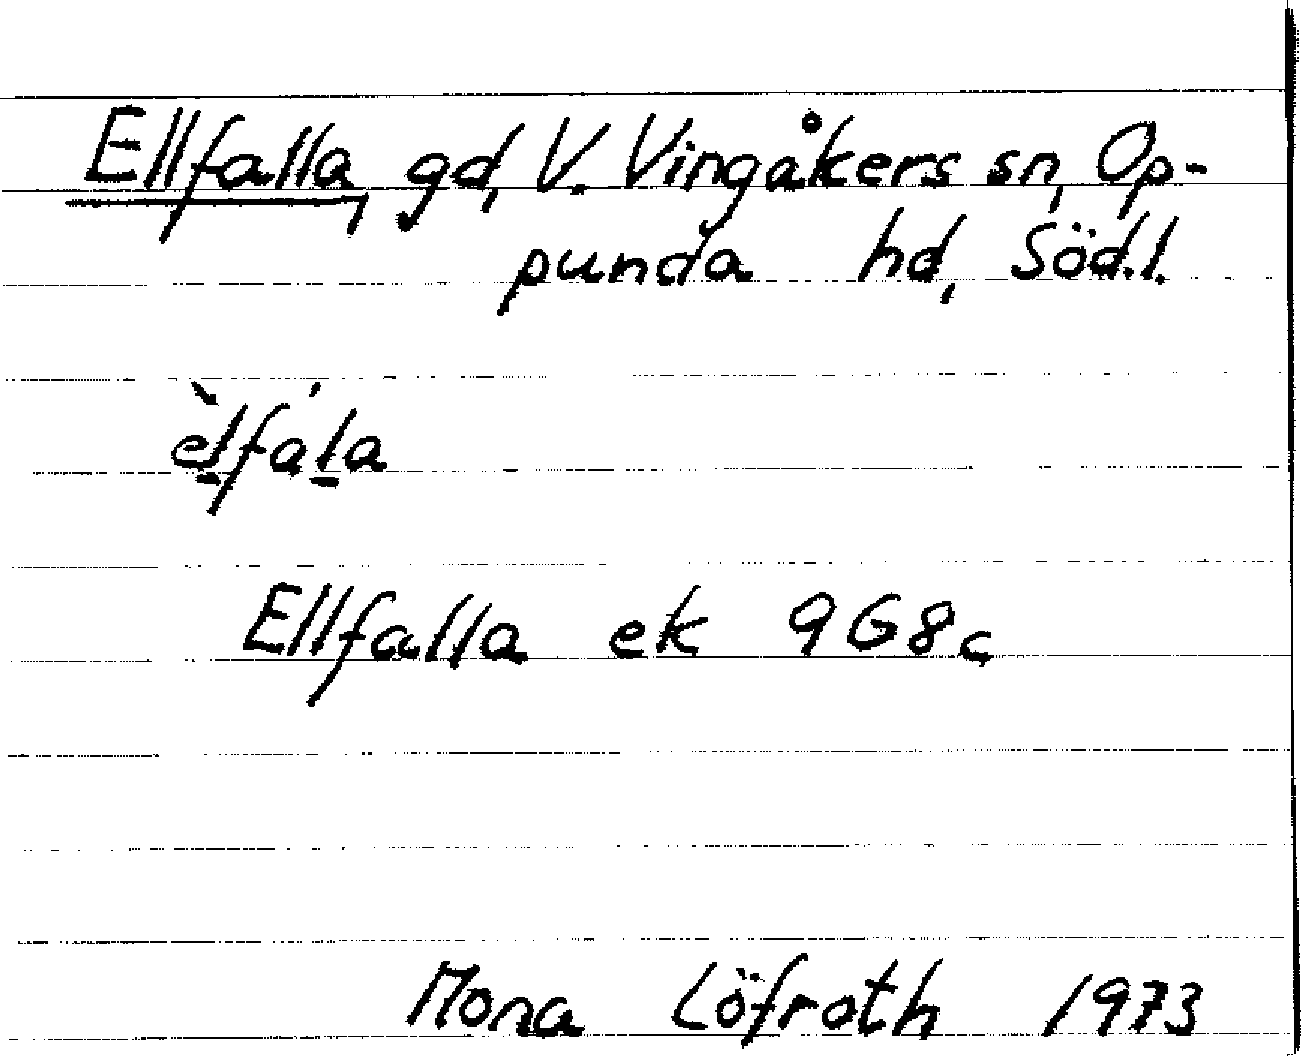 Ellfalla, gd, V. Vingåkers sn, Op-
punda hd, Södl.
èl̠fál̠a
Ellfalla ek 9G8c
Mona Löfroth 1973